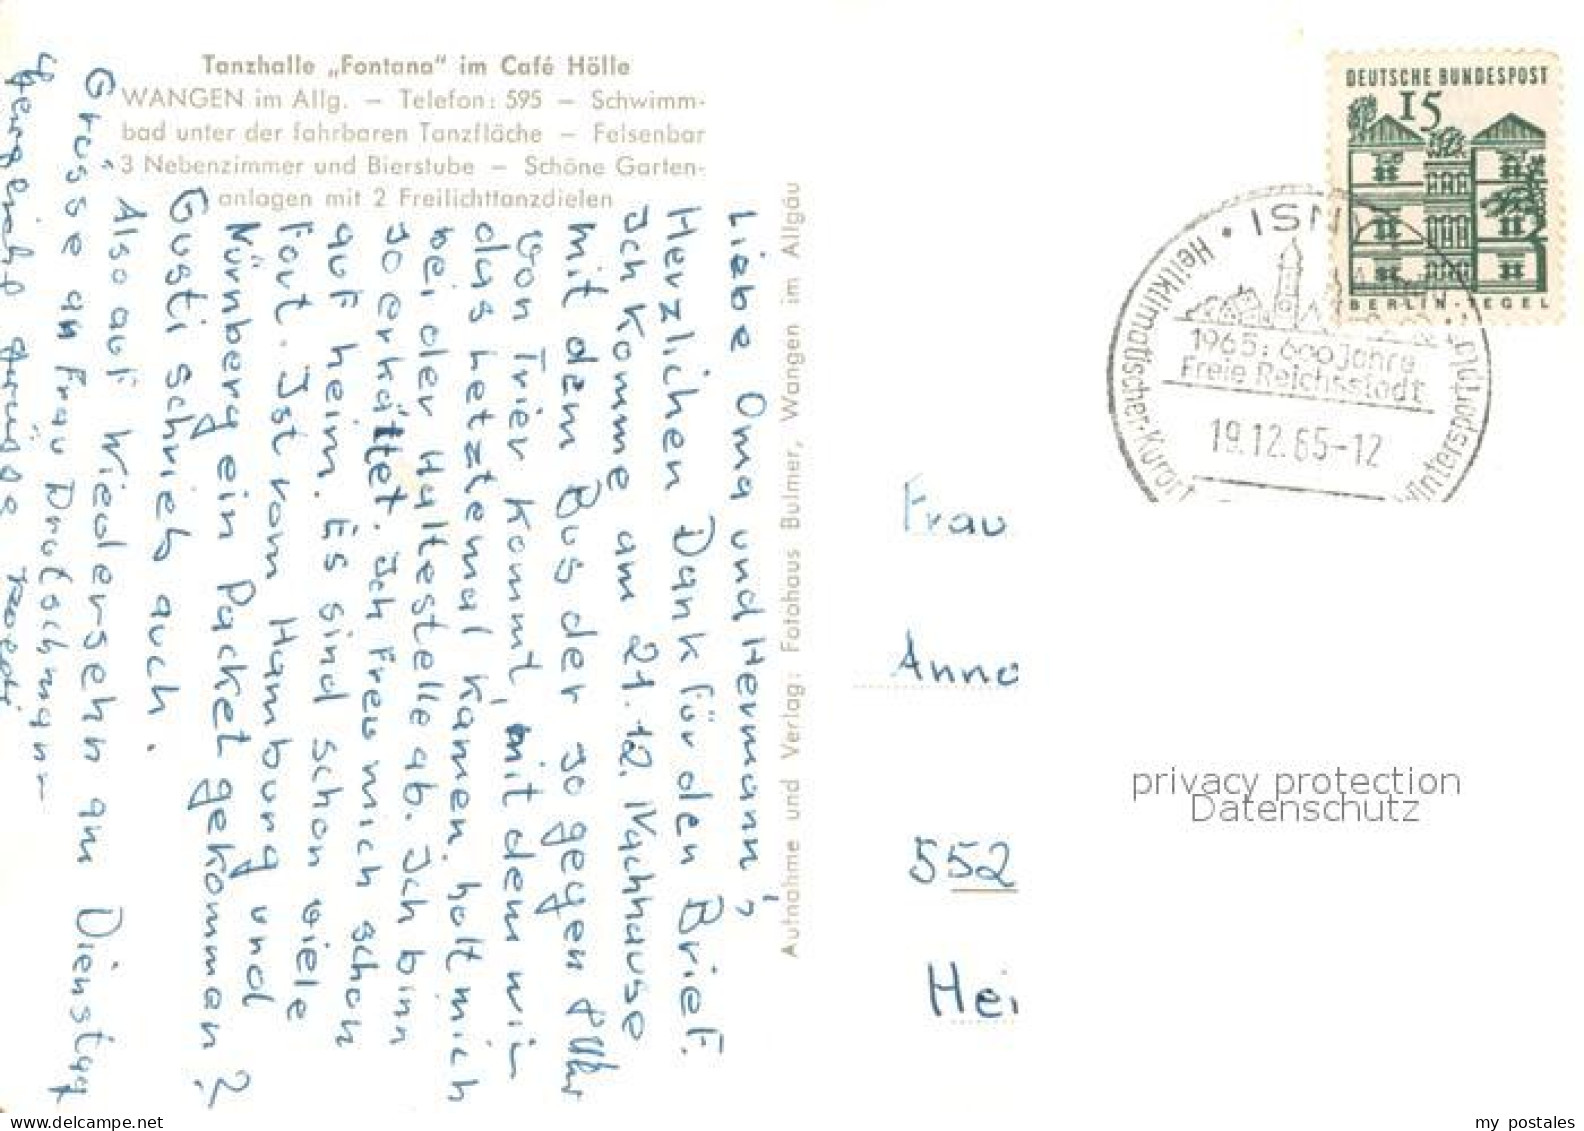 Tanzhalle „Fontana" im Café Hölle
WANGEN im Allg. – Telefon: 595 – Schwimm-
bad unter der fahrbaren Tanzfläche – Felsenbar
3 Nebenzimmer und Bierstube – Schöne Garten-
anlagen mit 2 Freilichttanzdielen
Aufnahme und Verlag: Fotohaus Bulmer, Wangen im Allgäu
Liebe Oma und Hermann,
Herzlichen Dank für den Brief.
Ich komme am 21.12. Nachhause
mit dem Bus der so gegen 8 Uhr
von Trier kommt, mit dem wir
das letztemal kamen. holt mich
bei der Haltestelle ab. Ich binn
so erkältet. Ich freu mich schon
auf heim. Es sind schon viele
Fort. Ist vom Hamburg und
Nürnberg ein Packet gekommen?
Gusti schrieb auch.
Also auf Wiedersehn am Dienstag
Grüsse an Frau Deutschmann
DEUTSCHE BUNDESPOST
15
BERLIN-TEGEL
ISN
1965: 600 Jahre
Freie Reichsstadt
19.12.65-12
Heilklimatischer-Kurort
Wintersportpl
Frau
Anna
552
Hei
privacy protection
Datenschutz
www.delcampe.net
my_postales